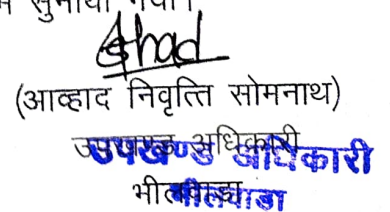 में सुनाया गया।
(आव्हाद निवृत्ति सोमनाथ)
उपखण्ड अधिकारी
उपखण्ड अधिकारी
भीलवाड़ा
भीलवाडा